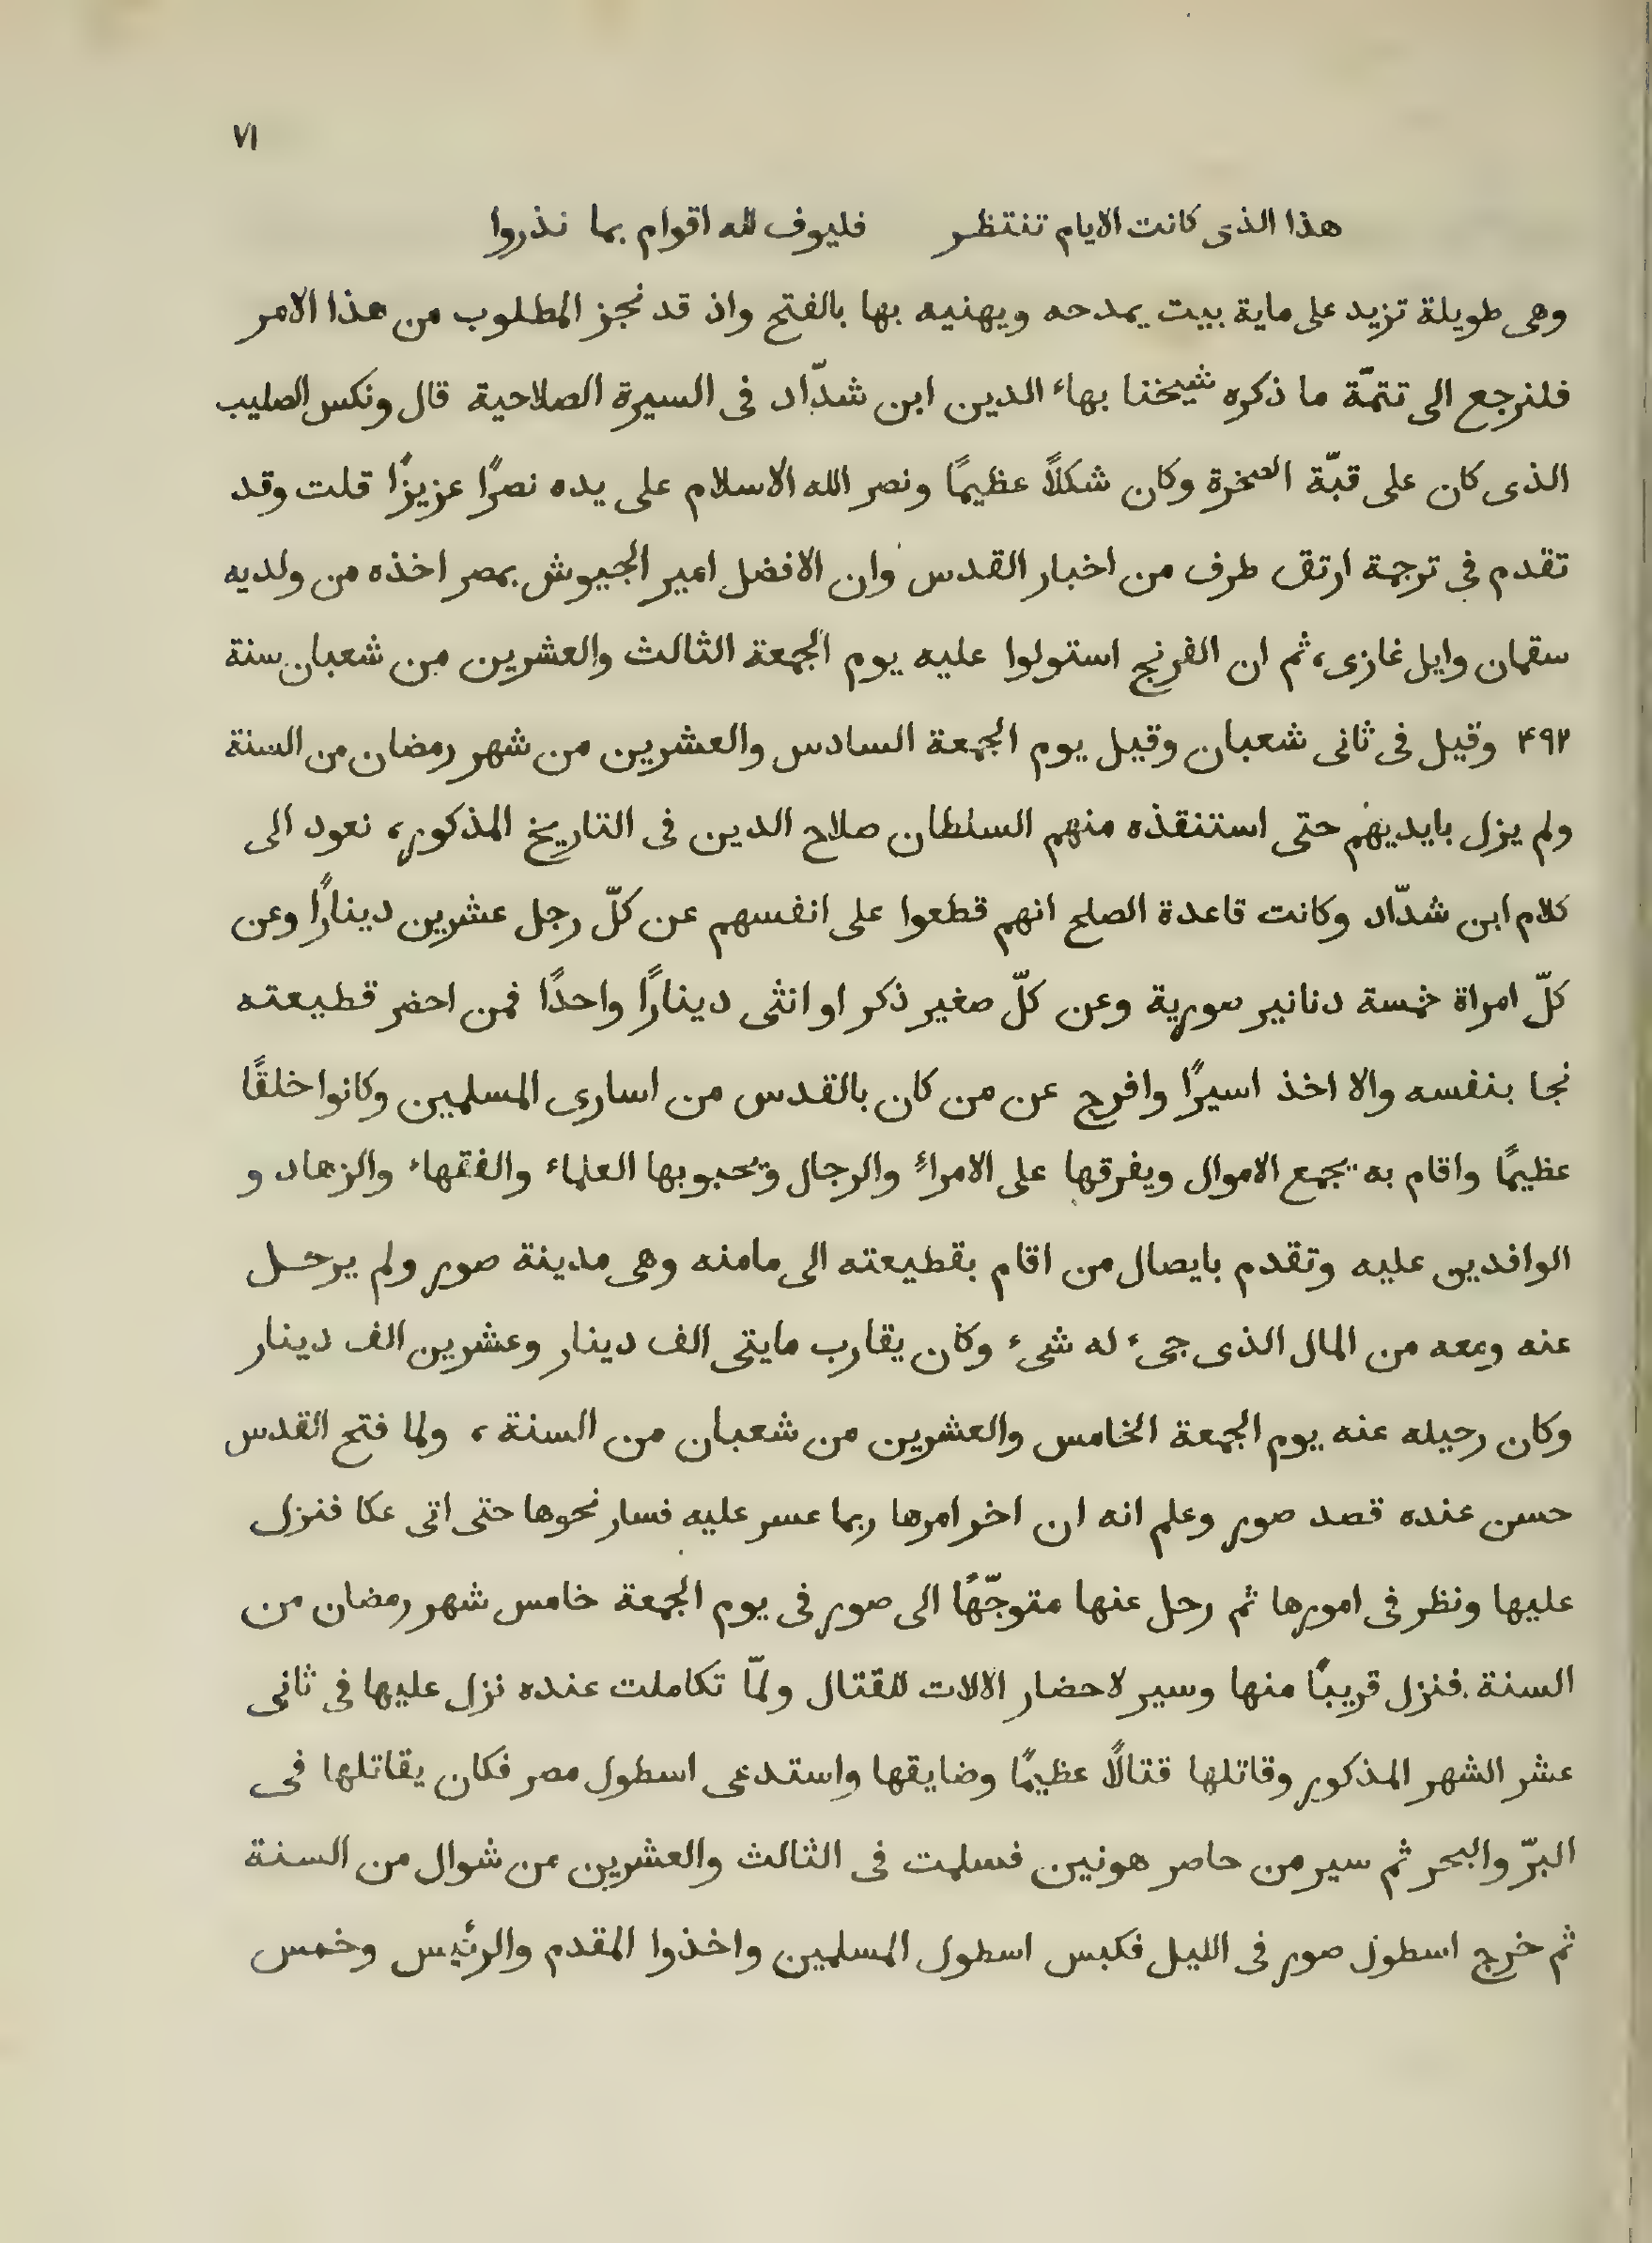 ٧١
هذا الذى كانت الايام تنتظر فليوف لله اقوام بما نذروا
وهى طويلة تزيد على ماية بيت يمدحه ويهنيه بها بالفتح واذ قد نجز المطلوب من هذا الامر
فلنرجع الى تتمّة ما ذكره شيخنا بهاء الدين ابن شدّاد فى السيرة الصلاحية قال ونكس الصليب
الذى كان على قبّة الصخرة وكان شكلاً عظيمًا ونصر الله الاسلام على يده نصرًا عزيزًا قلت وقد
تقدم فى ترجمة ارتق طرف من اخبار القدس وان الافضل امير الجيوش بمصر اخذه من ولديه
سقمان وايل غازى، ثم ان الفرنج استولوا عليه يوم الجمعة الثالث والعشرين من شعبان سنة
۴۹۲ وقيل فى ثانى شعبان وقيل يوم الجمعة السادس والعشرين من شهر رمضان من السنة
ولم يزل بايديهم حتى استنقذه منهم السلطان صلاح الدين فى التاريخ المذكور، نعود الى
كلام ابن شدّاد وكانت قاعدة الصلح انهم قطعوا على انفسهم عن كلّ رجل عشرين دينارًا وعن
كلّ امراة خمسة دنانير صورية وعن كلّ صغير ذكر او انثى دينارًا واحدًا فمن احضر قطيعته
نجا بنفسه والا اخذ اسيرًا وافرج عن من كان بالقدس من اسارى المسلمين وكانوا خلقًا
عظيمًا واقام به يجمع الاموال ويفرقها على الامراء والرجال ويحبو بها العلماء والفقهاء والزهاد و
الوافدين عليه وتقدم بايصال من اقام بقطيعته الى مامنه وهى مدينة صور ولم يرحل
عنه ومعه من المال الذى جىء له شىء وكان يقارب مايتى الف دينار وعشرين الف دينار
وكان رحيله عنه يوم الجمعة الخامس والعشرين من شعبان من السنة، ولما فتح القدس
حسن عنده قصد صور وعلم انه ان اخر امرها ربما عسر عليه فسار نحوها حتى اتى عكا فنزل
عليها ونظر فى امورها ثم رحل عنها متوجّهًا الى صور فى يوم الجمعة خامس شهر رمضان من
السنة فنزل قريبًا منها وسير لاحضار الالات للقتال ولمّا تكاملت عنده نزل عليها فى ثانى
عشر الشهر المذكور وقاتلها قتالًا عظيمًا وضايقها واستدعى اسطول مصر فكان يقاتلها فى
البرّ والبحر ثم سير من حاصر هونين فسلمت فى الثالث والعشرين من شوال من السنة
ثم خرج اسطول صور فى الليل فكبس اسطول المسلمين واخذوا المقدم والرئيس وخمس